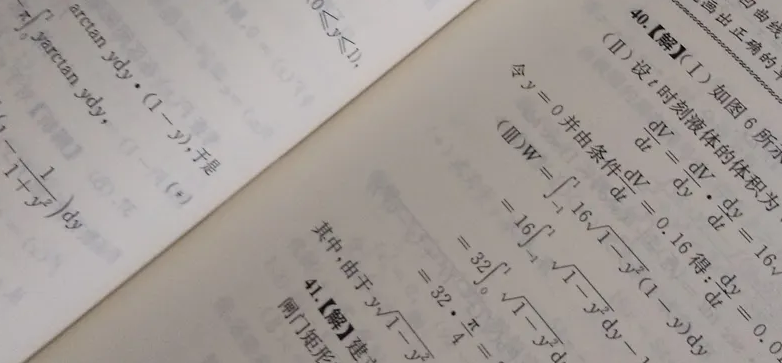 (0≤y≤1),
arctan ydy·(1-y),于是
-π∫₀¹yarctan ydy,
(*)
(1-\frac{1}{1+y²})dy
凹曲线
画出正确的
40.【解】(Ⅰ)如图6所示
(Ⅱ)设t时刻液体的体积为
\frac{dV}{dt}=\frac{dV}{dy}·\frac{dy}{dt}=16√
令y=0并由条件\frac{dV}{dt}=0.16得:\frac{dy}{dt}=0.0
(Ⅲ)W=∫₋₁¹16√(1-y²)(1-y)dy
=16∫₋₁¹√(1-y²)dy-
=32∫₀¹√(1-y²)d
=32·\frac{π}{4}=
其中,由于y√(1-y²)
41.【解】建
闸门矩形